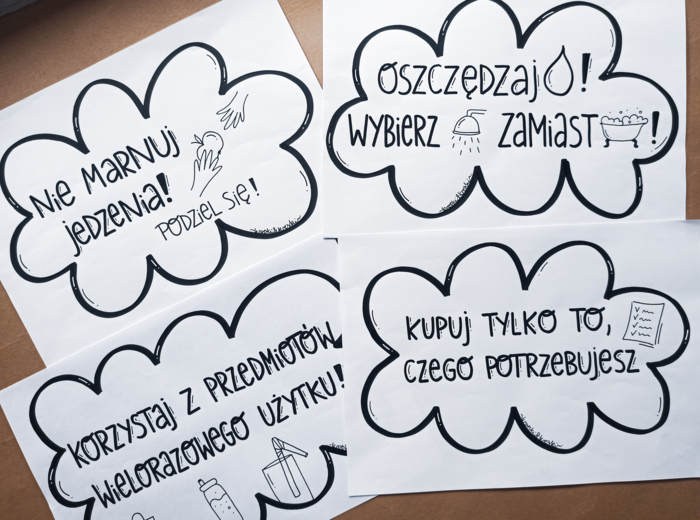 Nie MARNUj
jedzenia!
PODZieL Się!
OSZCZędzaj!
WYBierz ZAMiAST!
KORZYSTaj Z PRZEDMiOTÓW
WieLORAZOWEGO UŻYTKU!
KUPUj TYLKO TO,
CZEGO POTRZEBUjESZ